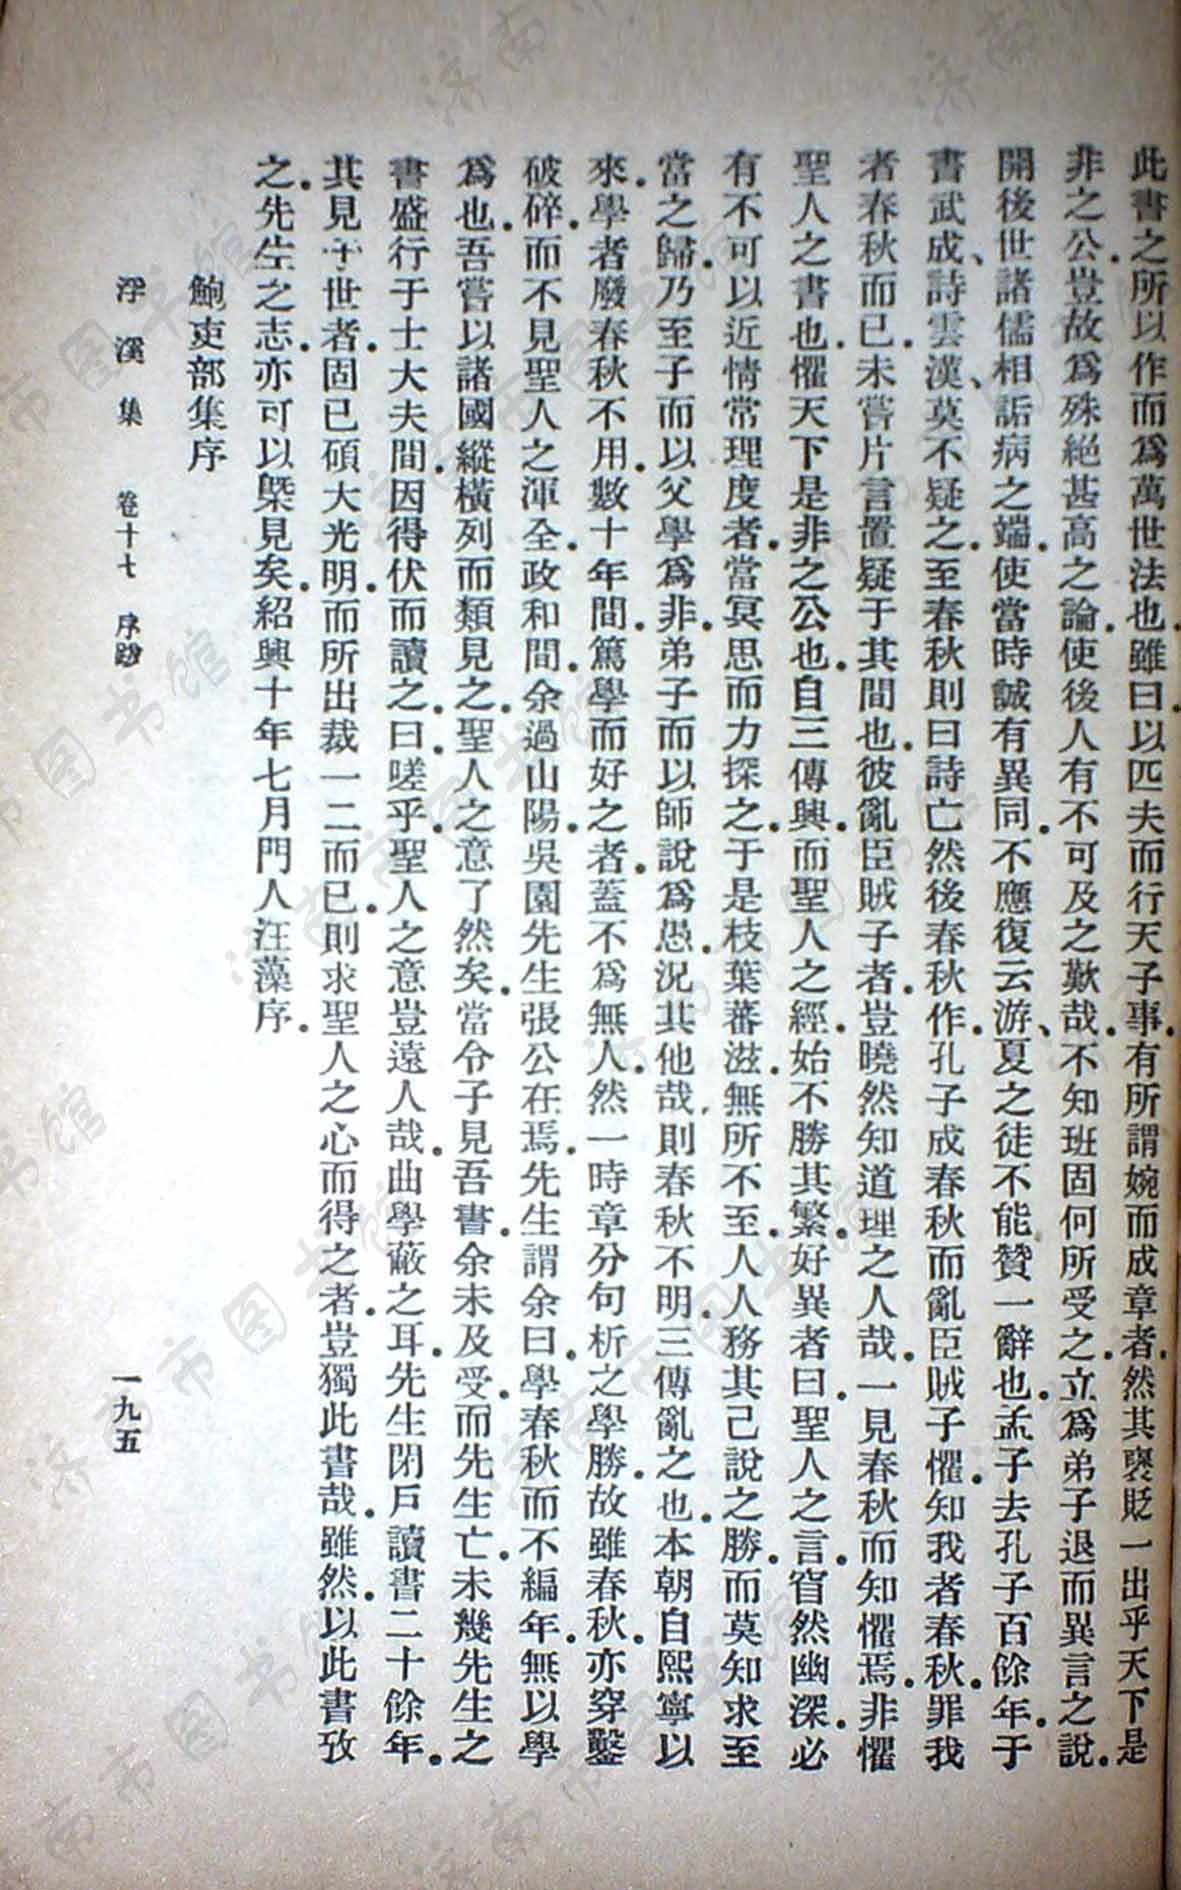 此書之所以作而爲萬世法也.雖曰.以匹夫而行天子事.有所謂婉而成章者.然其襃貶一出乎天下是
非之公.豈故爲殊絕甚高之論.使後人有不可及之歎哉.不知班固何所受之.立爲弟子退而異言之說.
開後世諸儒相詬病之端.使當時誠有異同.不應復云游、夏之徒不能贊一辭也.孟子去孔子百餘年.于
書武成、詩雲漢、莫不疑之.至春秋則曰詩亡然後春秋作.孔子成春秋而亂臣賊子懼.知我者春秋.罪我
者春秋而已.未嘗片言置疑于其間也.彼亂臣賊子者.豈曉然知道理之人哉.一見春秋而知懼焉.非懼
聖人之書也.懼天下是非之公也.自三傳興.而聖人之經.始不勝其繁.好異者曰.聖人之言.窅然幽深.必
有不可以近情常理度者.當冥思而力探之.于是枝葉蕃滋.無所不至.人人務其己說之勝.而莫知求至
當之歸.乃至子而以父學爲非.弟子而以師說爲愚.況其他哉.則春秋不明.三傳亂之也.本朝自熙寧以
來.學者廢春秋不用.數十年間.篤學而好之者.蓋不爲無人.然一時章分句析之學勝.故雖春秋.亦穿鑿
破碎.而不見聖人之渾全.政和間.余過山陽.吳園先生張公在焉.先生謂余曰.學春秋而不編年.無以學
爲也.吾嘗以諸國縱橫列而類見之.聖人之意了然矣.當令子見吾書.余未及受.而先生亡.未幾先生之
書盛行于士大夫間.因得伏而讀之.曰.嗟乎.聖人之意豈遠人哉.曲學蔽之耳.先生閉戶讀書二十餘年.
其見于世者.固已碩大光明.而所出裁一二而已.則求聖人之心而得之者.豈獨此書哉.雖然.以此書攷
之.先生之志.亦可以槩見矣.紹興十年七月門人汪藻序.
鮑吏部集序
浮溪集 卷十七 序跋 一九五